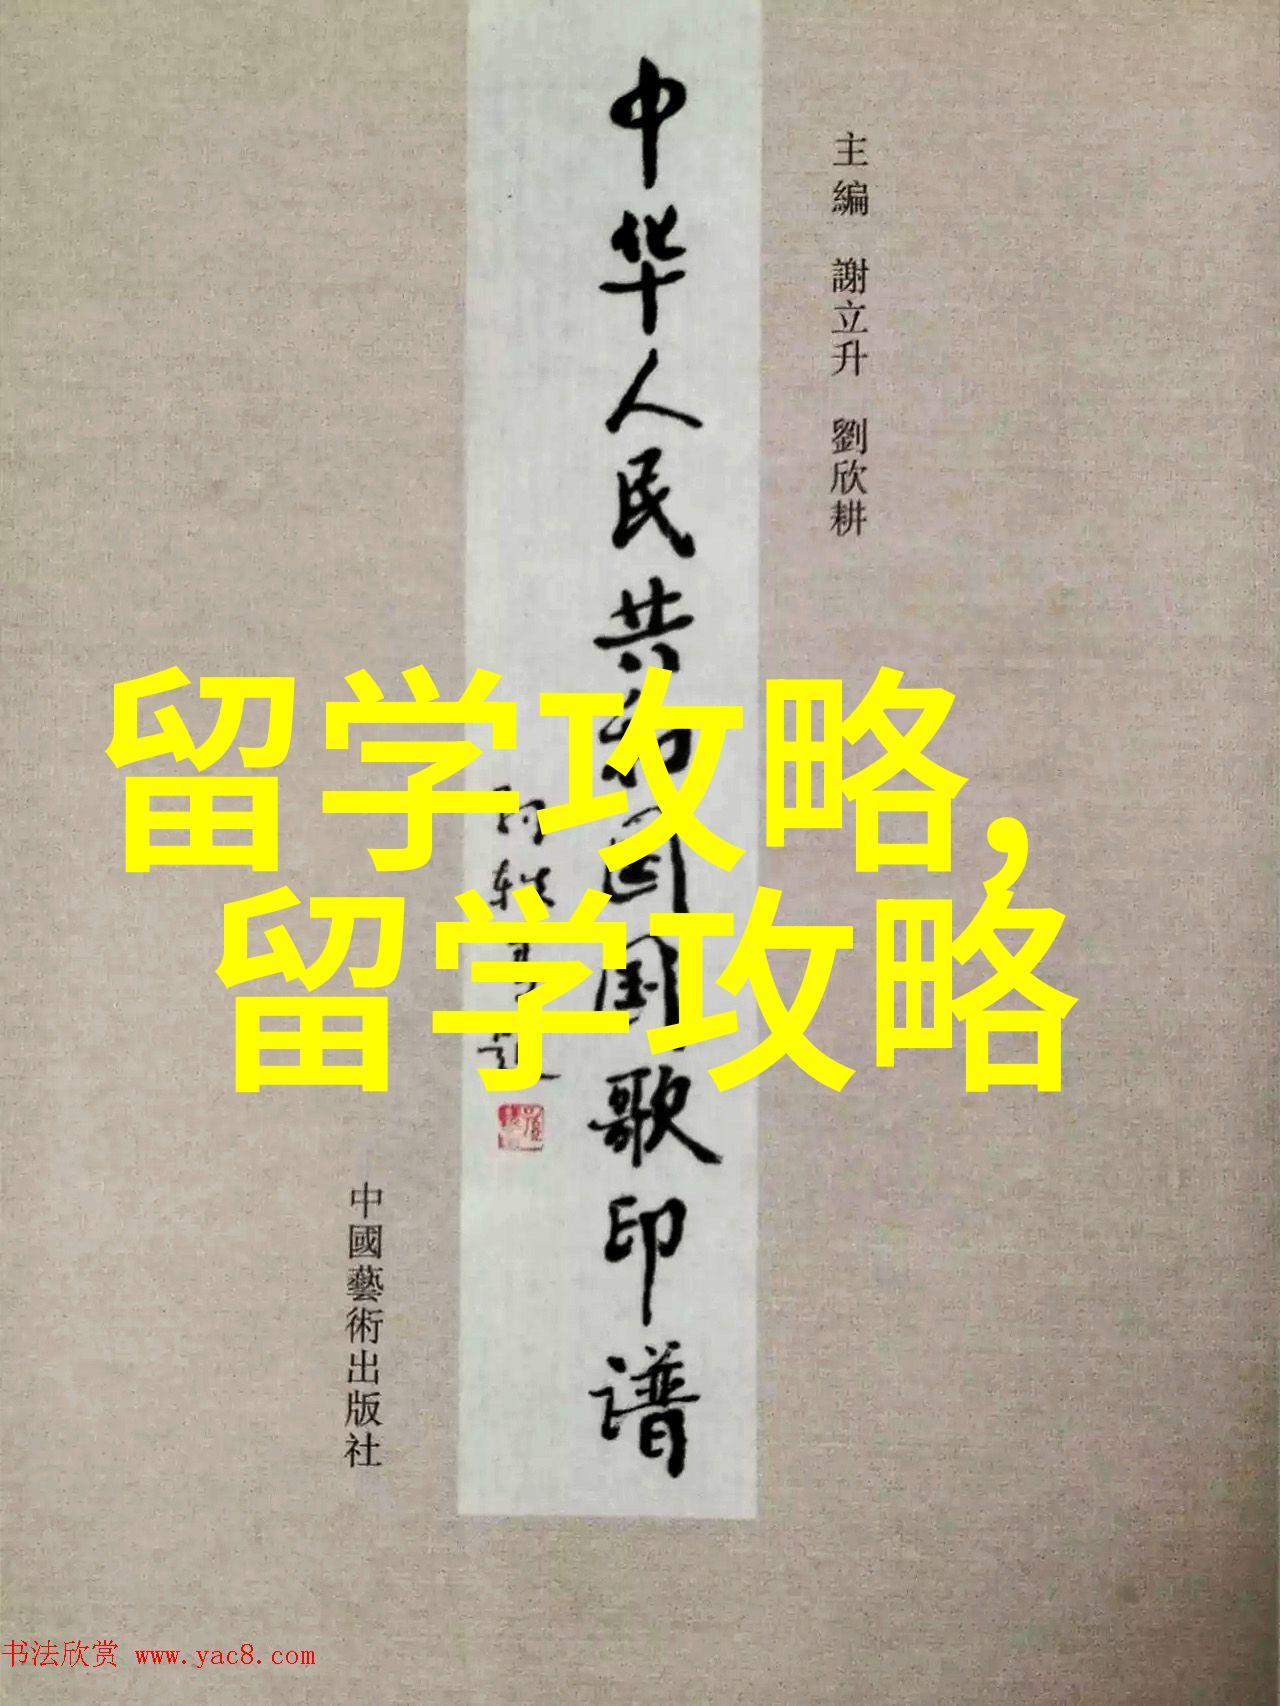 主編 謝立升 劉欣耕
中华人民共和国国歌印谱
中國藝術出版社
留学攻略,
留学攻略
书法欣赏 www.yac8.com